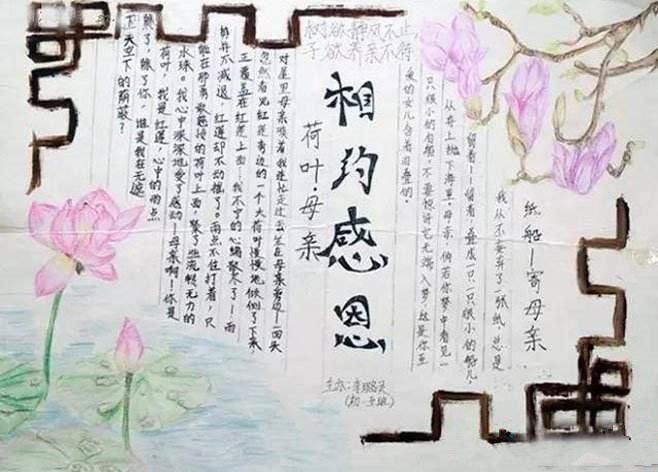 树欲静风不止
子欲养亲不得
纸船—寄母亲
我从不妄弃了一张纸，总是
留着——留着，叠成一只一只很小的船儿，
从舟上抛下海里。母亲，倘若你梦中看见一
只很小的白船，不要惊讶它无端入梦。这是你至
爱的女儿含着泪叠的。
相约感恩
主办：
(初一五班)
荷叶·母亲
对屋里母亲唤着，我连忙走过去，坐在母亲旁边—一回头
忽然看见红莲旁边的一个大荷叶慢慢地倾侧了下来，
正覆盖在红莲上面……我不宁的心绪散尽了！—雨
势并不减退，红莲却不动摇了。雨点不住打着，只
能在那勇敢慈怜的荷叶上面，聚了些流转无力的
水珠。我心中深深地受了感动—母亲啊！你是
荷叶，我是红莲，心中的雨点
来了，除了你，谁是我在无遮
天空下的荫蔽？